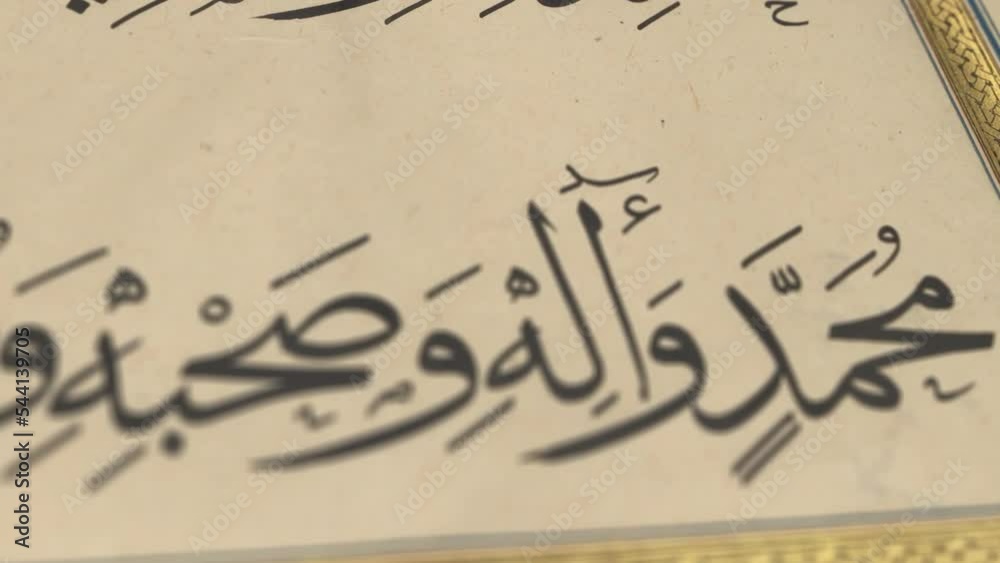 مُحَمَّدٍ وَأَلِهِ وَصَحْبِهِ
Adobe Stock | #544139705